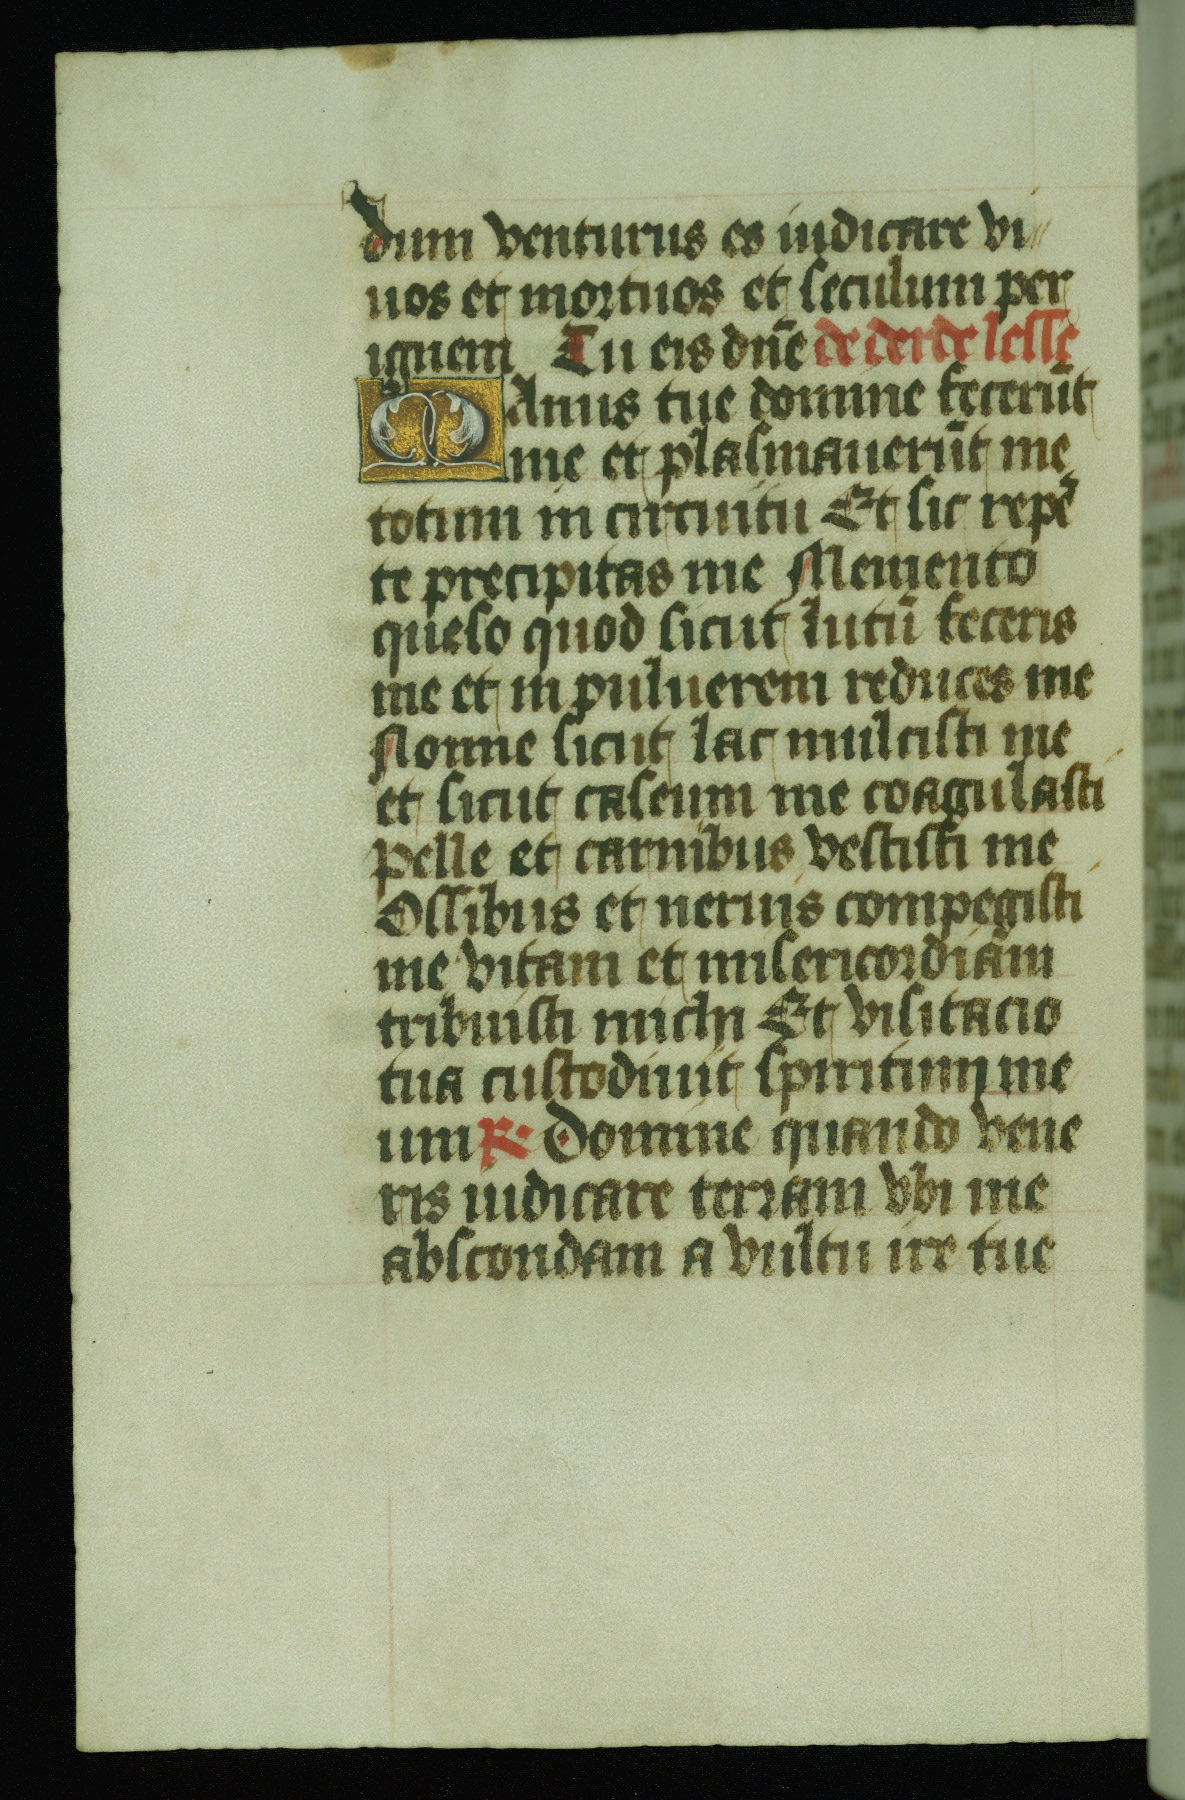 dum venturus es iudicare vi//
uos et mortuos et seculum per
ignem Tu eis dn̄e de derde lesse
Manus tue domine fecerūt
me et plasmauerūt me
totum in circuitu Et sic repē
te precipitas me Memento
queso quod sicut lutū feceris
me et in puluerem reduces me
Nonne sicut lac mulcisti me
et sicut caseum me coagulasti
Pelle et carnibus vestisti me
Ossibus et neruis compegisti
me vitam et misericordiam
tribuisti michi Et visitacio
tua custodiuit spiritum me
um R. Domine quando vene
ris iudicare terram vbi me
abscondam a vultu ire tue